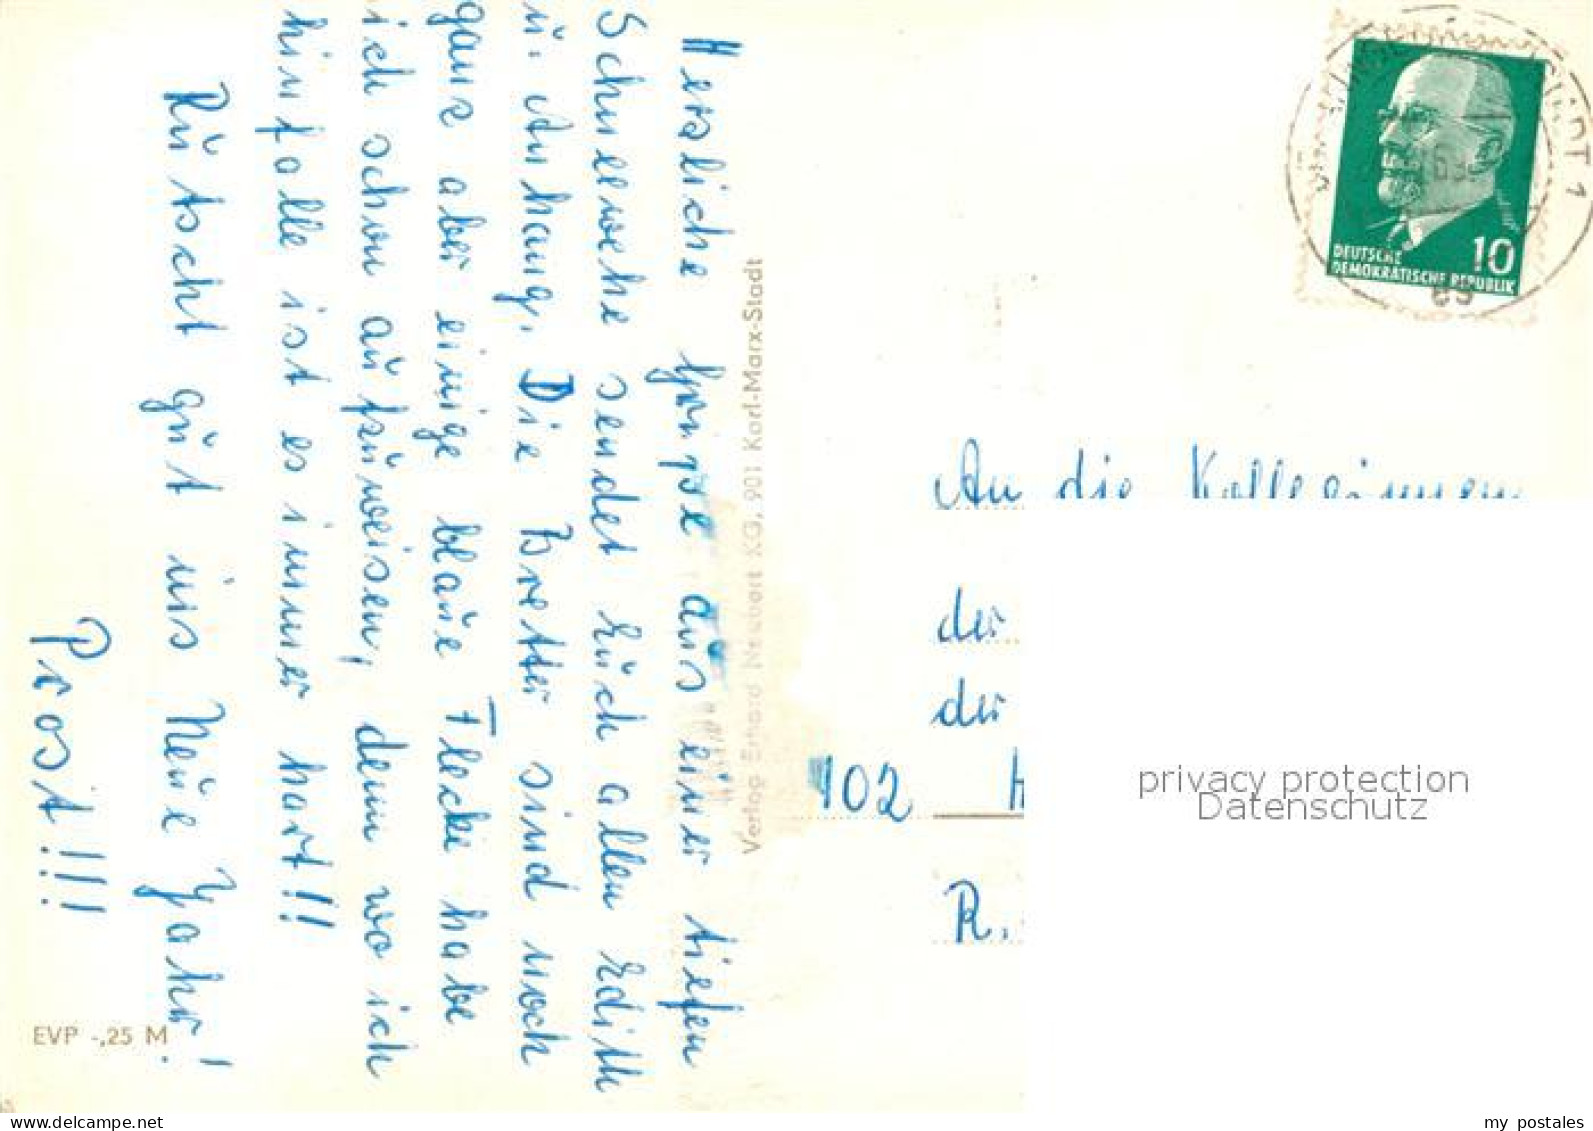 Herzliche Grüße aus einer tiefen
Schneewehe sendet Euch allen Edith
u. Anhang. Die Bretter sind noch
ganz aber einige blaue Flecke habe
ich schon aufzuweisen, denn wo ich
hinfalle ist es immer hart!!
Rutscht gut ins Neue Jahr!
Prost!!!
Verlag Erhard Neubert KG, 901 Karl-Marx-Stadt
EVP -,25 M
DEUTSCHE
DEMOKRATISCHE REPUBLIK
10
An die Kolleginnen
der
der
102
R.
privacy protection
Datenschutz
www.delcampe.net
my_postales